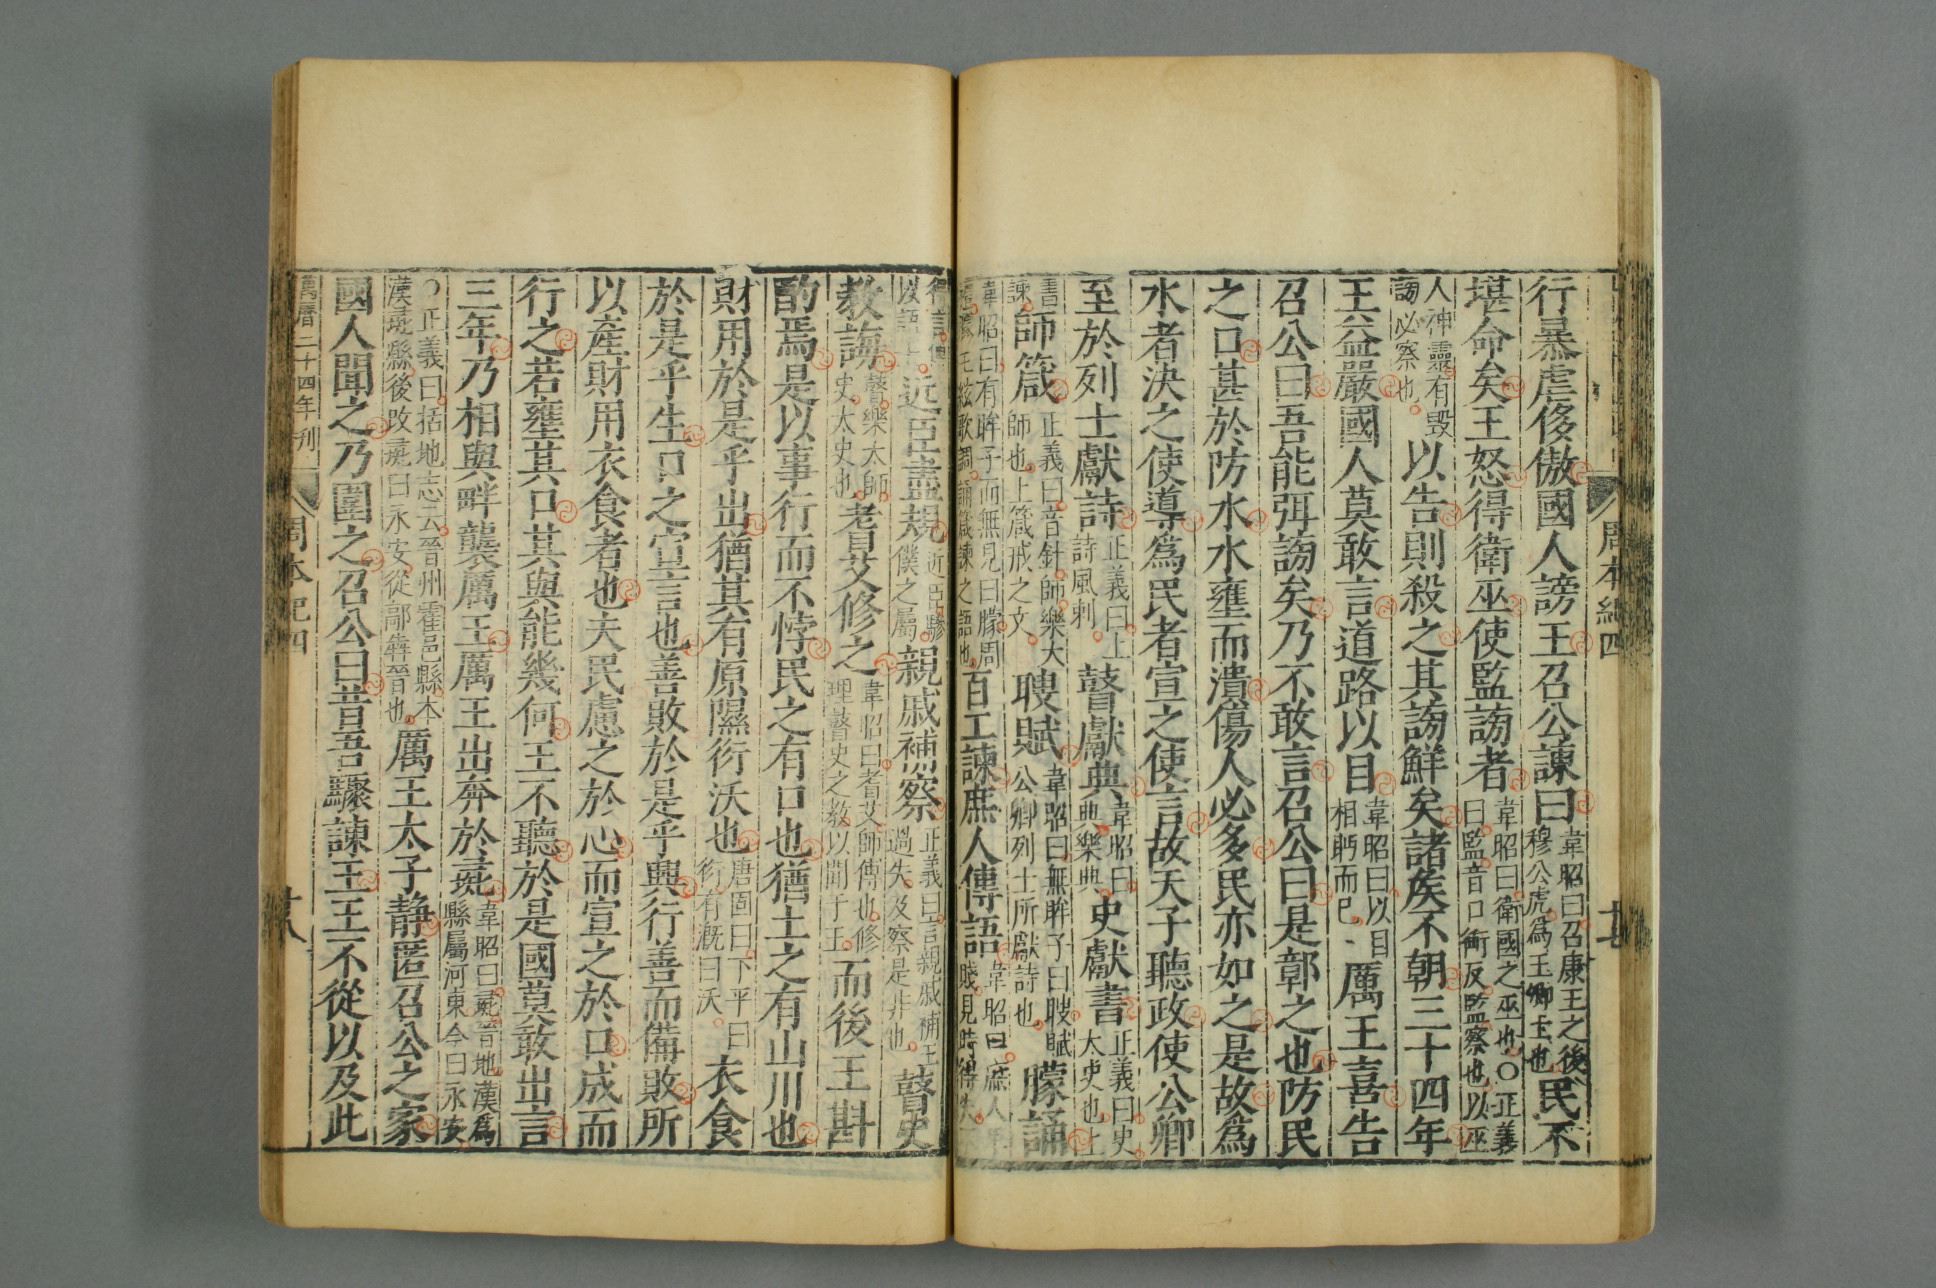 周本紀四
十七
行暴虐侈傲國人謗王召公諫曰韋昭曰召康王之後穆公虎爲王卿士也民不
堪命矣王怒得衛巫使監謗者韋昭曰衛國之巫也○正義曰監音口銜反監察也以巫
人神靈有毀謗必察也以告則殺之其謗鮮矣諸矦不朝三十四年
王益嚴國人莫敢言道路以目韋昭曰以目相眄而已厲王喜告
召公曰吾能弭謗矣乃不敢言召公曰是鄣之也防民
之口甚於防水水壅而潰傷人必多民亦如之是故爲
水者決之使導爲民者宣之使言故天子聽政使公卿
至於列士獻詩正義曰上詩風刺瞽獻典韋昭曰典樂典史獻書正義曰史太史也上
書諫師箴正義曰音針師樂大師也上箴戒之文瞍賦韋昭曰無眸子曰瞍賦公卿列士所獻詩也矇誦
韋昭曰有眸子而無見曰矇周絃歌諷誦箴諫之語也百工諫庶人傳語韋昭曰庶人賤見時得失
以語士近臣盡規近臣驂僕之屬親戚補察正義曰言親戚補王過失及察是非也瞽史
教誨瞽樂太師史太史也耆艾修之韋昭曰耆艾師傅也修理瞽史之教以聞于王而後王斟
酌焉是以事行而不悖民之有口也猶土之有山川也
財用於是乎出猶其有原隰衍沃也唐固曰下平曰衍有溉曰沃衣食
於是乎生口之宣言也善敗於是乎興行善而備敗所
以產財用衣食者也夫民慮之於心而宣之於口成而
行之若壅其口其與能幾何王不聽於是國莫敢出言
三年乃相與畔襲厲王厲王出奔於彘韋昭曰彘晉地漢爲縣屬河東今曰永安
○正義曰括地志云晉州霍邑縣本漢彘縣後改彘曰永安從鄗犇晉也厲王太子靜匿召公之家
國人聞之乃圍之召公曰昔吾驟諫王王不從以及此
萬曆二十四年刊
周本紀四
十八